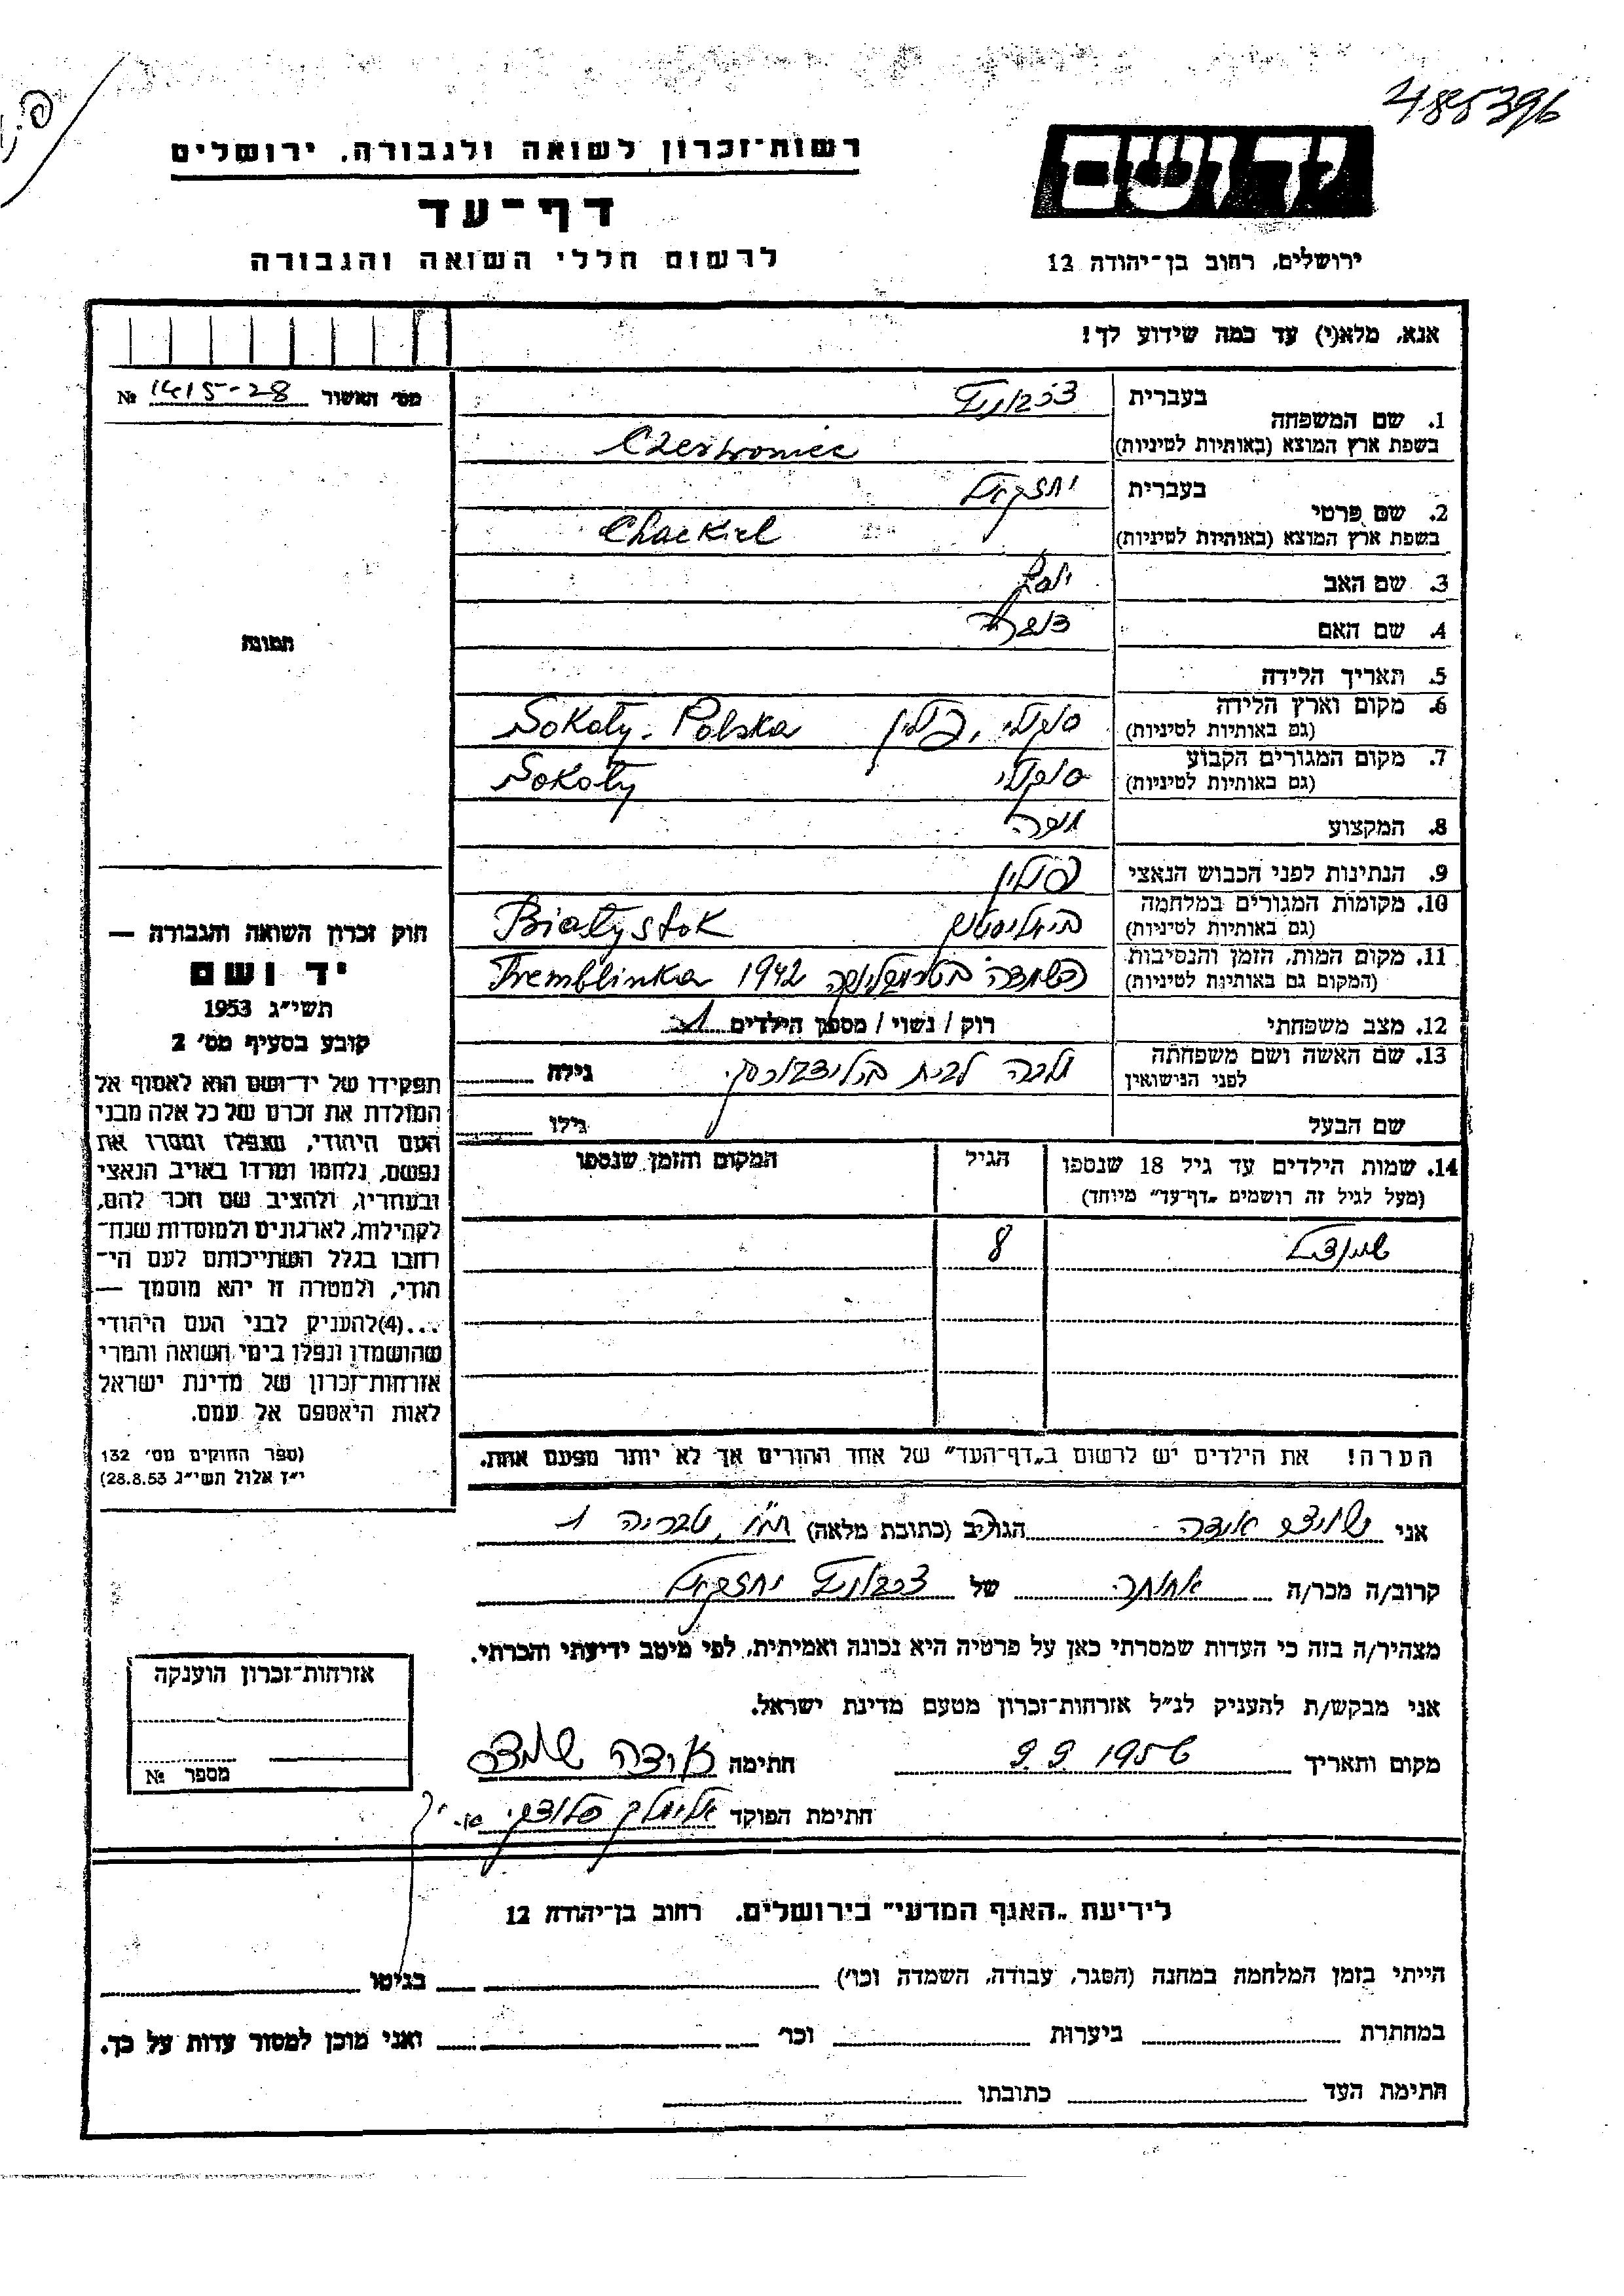 485396
יד ושם
רשות־זכרון לשואה ולגבורה, ירושלים
דף־עד
לרשום חללי השואה והגבורה
ירושלים, רחוב בן־יהודה 12
אנא, מלא(י) עד כמה שידוע לך!
מס׳ האשור 1415-28 №
1. שם המשפחה
בעברית
בשפת ארץ המוצא (באותיות לטיניות) Czerwoniec
2. שם פרטי
בעברית יחזקאל
בשפת ארץ המוצא (באותיות לטיניות) Chackiel
3. שם האב
4. שם האם
5. תאריך הלידה
6. מקום וארץ הלידה סוקולי, פולין Sokoły. Polska
(גם באותיות לטיניות)
7. מקום המגורים הקבוע סוקולי Sokoły
(גם באותיות לטיניות)
8. המקצוע
9. הנתינות לפני הכבוש הנאצי פולין
10. מקומות המגורים במלחמה ביאליסטוק Białystok
(גם באותיות לטיניות)
11. מקום המות, הזמן והנסיבות בהשמדה בטרמבלינקה 1942 Tremblinka
(המקום גם באותיות לטיניות)
12. מצב משפחתי רוק / נשוי / מספר הילדים 1
13. שם האשה ושם משפחתה לבית גילה
לפני הנישואין
שם הבעל גילו
14. שמות הילדים עד גיל 18 שנספו הגיל המקום והזמן שנספו
(מעל לגיל זה רושמים „דף־עד” מיוחד)
8
הערה! את הילדים יש לרשום ב„דף־העד” של אחד ההורים אך לא יותר מפעם אחת.
תמונה
חוק זכרון השואה והגבורה —
יד ושם
תשי״ג 1953
קובע בסעיף מס׳ 2
תפקידו של יד־ושם הוא לאסוף אל
המולדת את זכרם של כל אלה מבני
העם היהודי, שנפלו ומסרו את
נפשם, נלחמו ומרדו באויב הנאצי
ובעוזריו, ולהציב שם וזכר להם,
לקהילות, לארגונים ולמוסדות שנח־
רחבו בגלל השתייכותם לעם הי־
הודי, ולמטרה זו יהא מוסמך —
...(4)להעניק לבני העם היהודי
שהושמדו ונפלו בימי השואה והמרי
אזרחות־זכרון של מדינת ישראל
לאות היאספם אל עמם.
(ספר החוקים מס׳ 132
י״ז אלול תשי״ג 28.8.53)
אני הגר/ה ב (כתובת מלאה) ת״א, טבריה 1
קרוב/ה מכר/ה אחותה של יחזקאל
מצהיר/ה בזה כי העדות שמסרתי כאן על פרטיה היא נכונה ואמיתית, לפי מיטב ידיעתי והכרתי.
אני מבקש/ת להעניק לנ״ל אזרחות־זכרון מטעם מדינת ישראל.
מקום ותאריך 9.9.1956 חתימה
חתימת הפוקד אלימלך
אזרחות־זכרון הוענקה
מספר №
לידיעת „האגף המדעי” בירושלים. רחוב בן־יהודה 12
הייתי בזמן המלחמה במחנה (הסגר, עבודה, השמדה וכו׳) בגיטו
במחתרת ביערות וכו׳ ואני מוכן למסור עדות על כך.
חתימת העד כתובתו